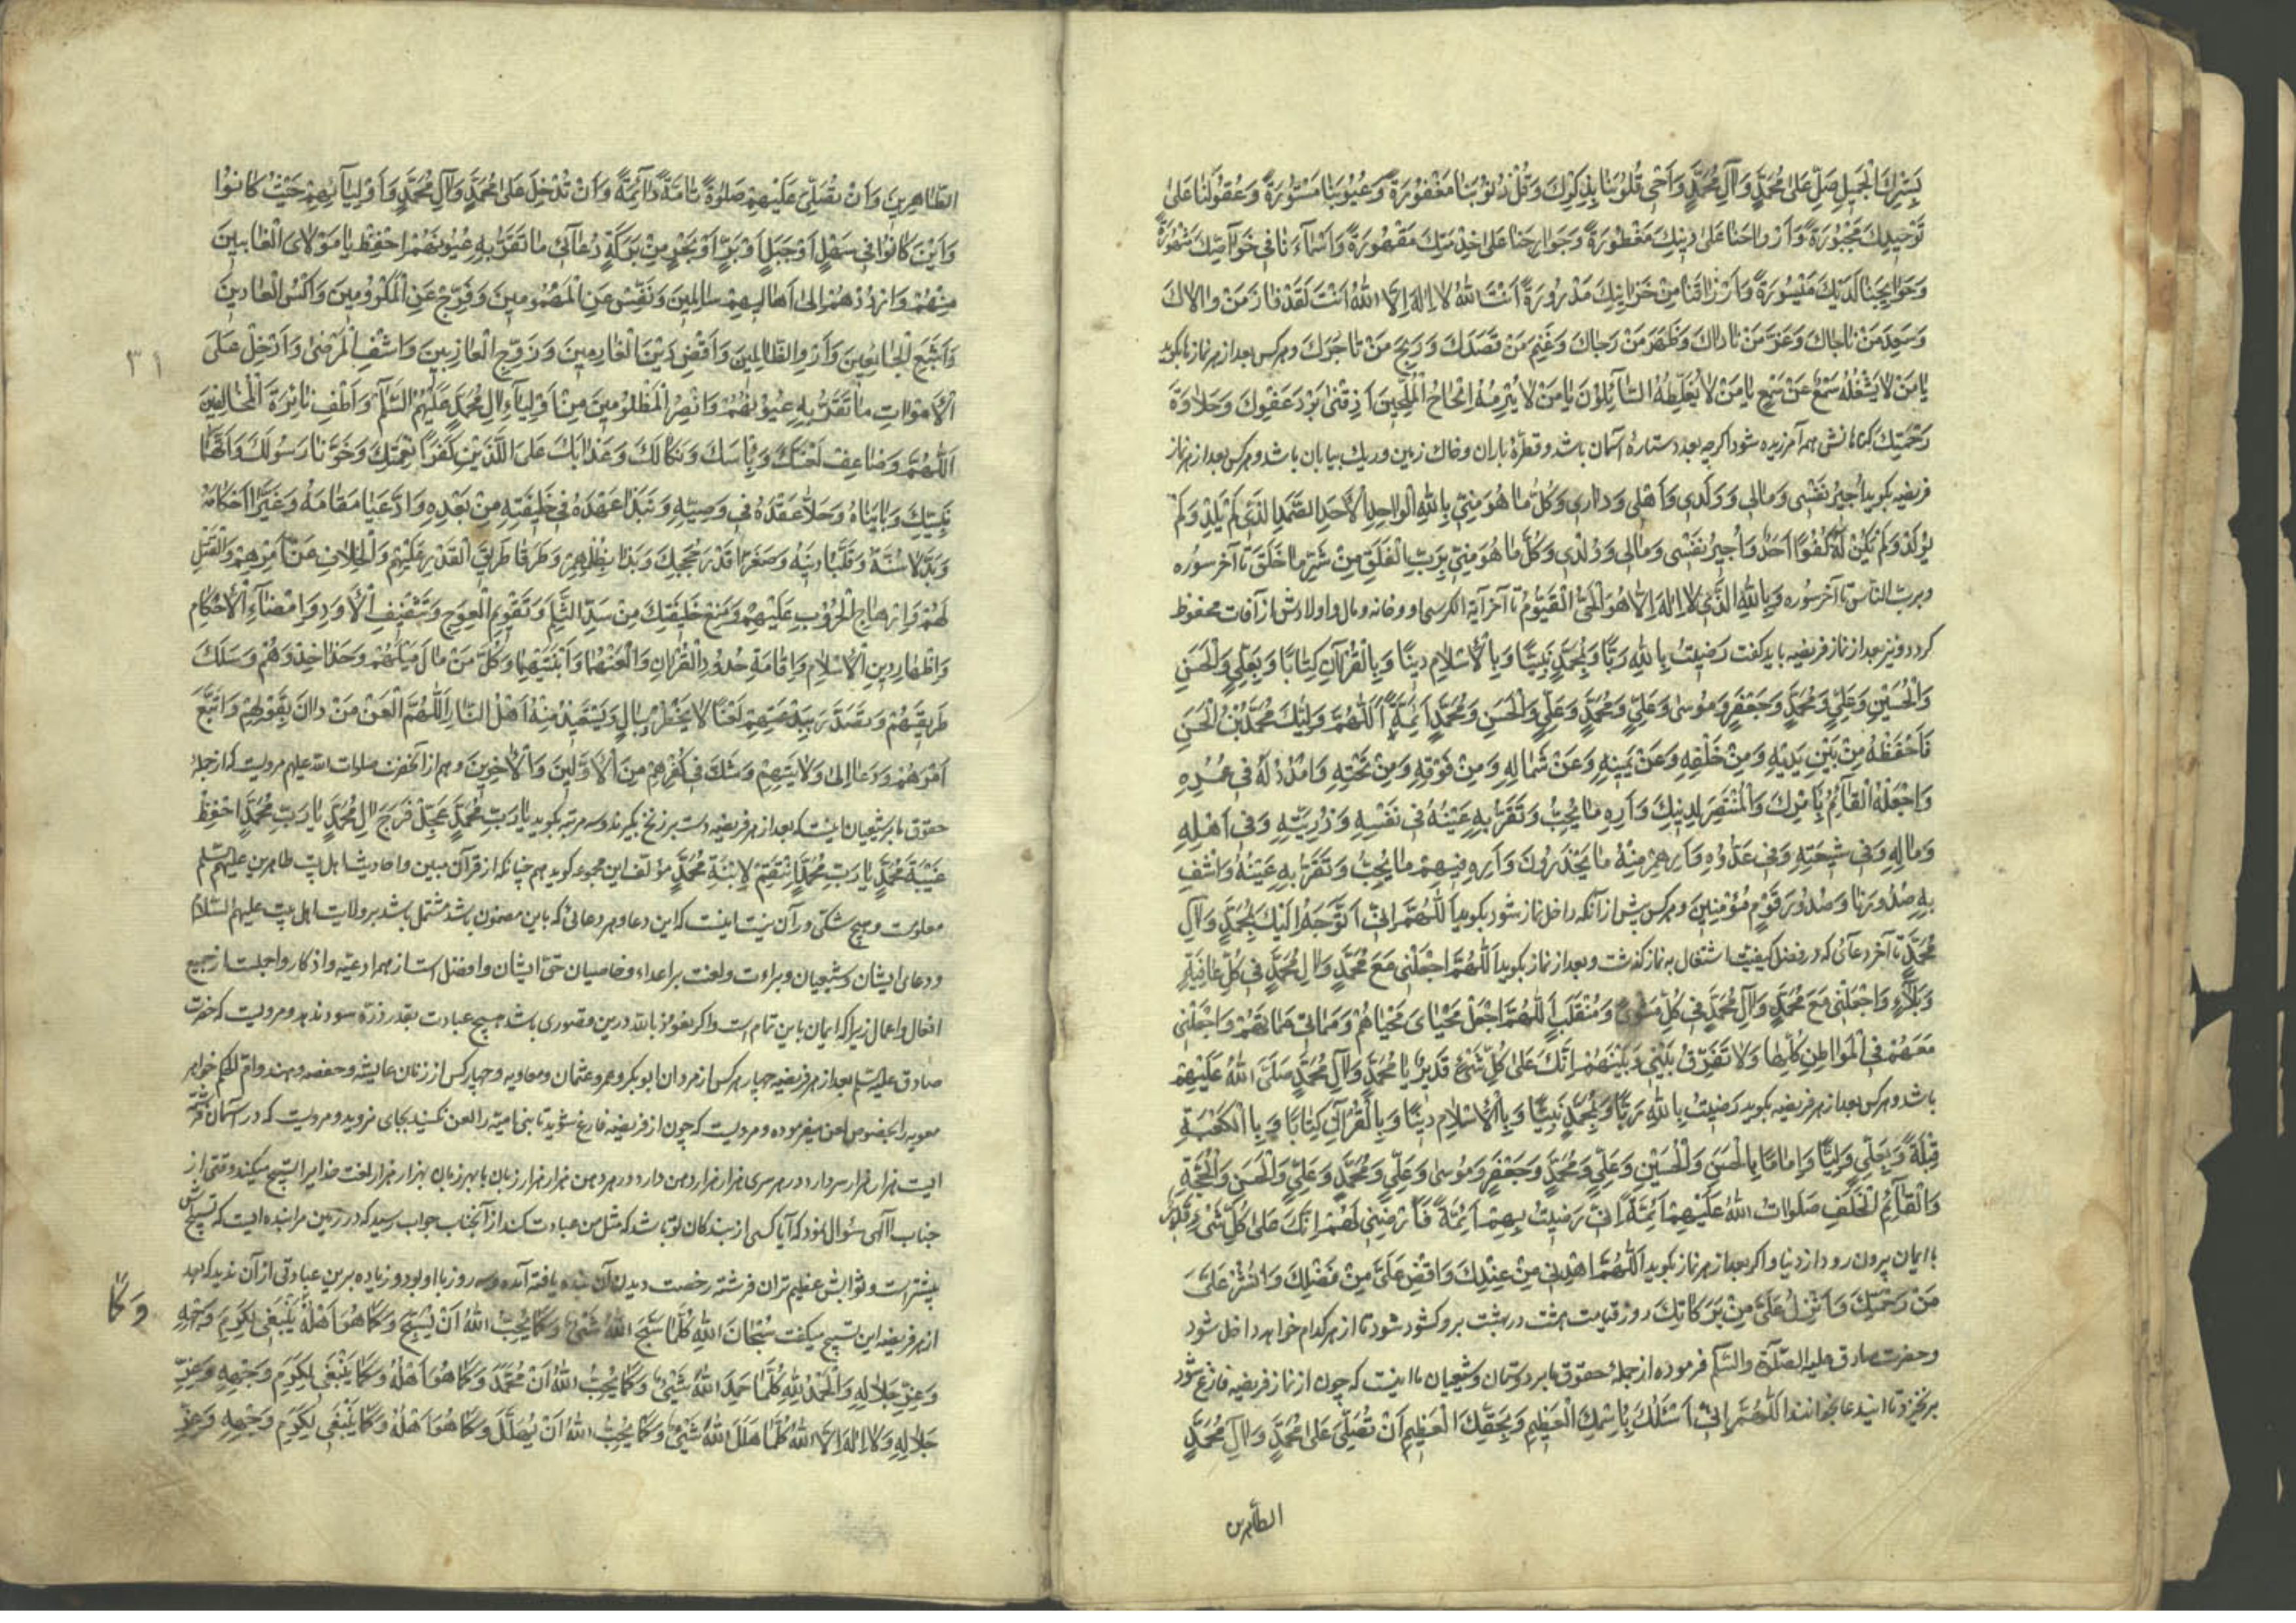 بِسِتْرِكَ الْجَمِيلِ صَلِّ عَلىٰ مُحَمَّدٍ وَآلِ مُحَمَّدٍ وَأَحْيِ قُلُوبَنَا بِذِكْرِكَ وَ ذُنُوبَنَا مَغْفُورَةً وَعُيُوبَنَا مَسْتُورَةً وَعُقُولَنَا عَلىٰ
تَوْحِيدِكَ مَجْبُورَةً وَأَرْوَاحَنَا عَلىٰ دِينِكَ مَفْطُورَةً وَجَوَارِحَنَا عَلىٰ خِدْمَتِكَ مَقْهُورَةً وَأَسْمَآءَنَا فِي خَوَآصِّكَ مَشْهُورَةً
وَحَوَآيِجَنَا لَدَيْكَ مَيْسُورَةً وَأَرْزَاقَنَا مِنْ خَزَايِنِكَ مَدْرُورَةً أَنْتَ اللهُ لَا إِلٰهَ إِلَّا اللهُ أَنْتَ لَقَدْ فَازَ مَنْ وَالَاكَ
وَسَعِدَ مَنْ نَاجَاكَ وَعَزَّ مَنْ نَادَاكَ وَظَفَرَ مَنْ رَجَاكَ وَغَنِمَ مَنْ قَصَدَكَ وَرَبِحَ مَنْ تَاجَرَكَ وهركس بعد از هر نماز بكويد
يَا مَنْ لَا يَشْغَلُهُ سَمْعٌ عَنْ سَمْعٍ يَا مَنْ لَا يُغَلِّطُهُ السَّآئِلُونَ يَا مَنْ لَا يُبْرِمُهُ إِلْحَاحُ الْمُلِحِّينَ أَذِقْنِي بَرْدَ عَفْوِكَ وَحَلَاوَةَ
رَحْمَتِكَ كناهانش همه آمرزيده شود اكرچه بعدد ستارهٔ آسمان باشد و قطرهٔ باران و خاك زمين و ريك بيابان باشد و هركس بعد از هر نماز
فريضه بكويد أُجِيرُ نَفْسِي وَمَالِي وَوَلَدِي وَأَهْلِي وَدَارِي وَكُلَّ مَا هُوَ مِنِّي بِاللهِ الْوَاحِدِ الْأَحَدِ الصَّمَدِ الَّذِي لَمْ يَلِدْ وَلَمْ
يُولَدْ وَلَمْ يَكُنْ لَهُ كُفُوًا أَحَدٌ وَأُجِيرُ نَفْسِي وَمَالِي وَوُلْدِي وَكُلَّ مَا هُوَ مِنِّي بِرَبِّ الْفَلَقِ مِنْ شَرِّ مَا خَلَقَ تا آخر سوره
وبرب الناس تا آخر سوره وَبِاللهِ الَّذِي لَا إِلٰهَ إِلَّا هُوَ الْحَيُّ الْقَيُّومُ تا آخر آية الكرسي او و خانه و مال و اولادش از آفات محفوظ
كردد و نيز بعد از نماز فريضه بايد كفت رَضِيتُ بِاللهِ رَبًّا وَبِمُحَمَّدٍ نَبِيًّا وَبِالْإِسْلَامِ دِينًا وَبِالْقُرْآنِ كِتَابًا وَبِعَلِيٍّ وَالْحَسَنِ
وَالْحُسَيْنِ وَعَلِيٍّ وَمُحَمَّدٍ وَجَعْفَرٍ وَمُوسىٰ وَعَلِيٍّ وَمُحَمَّدٍ وَعَلِيٍّ وَالْحَسَنِ وَمُحَمَّدٍ أَئِمَّةً اَللّٰهُمَّ وَلِيُّكَ مُحَمَّدُ بْنُ الْحَسَنِ
فَاحْفَظْهُ مِنْ بَيْنِ يَدَيْهِ وَمِنْ خَلْفِهِ وَعَنْ يَمِينِهِ وَعَنْ شِمَالِهِ وَمِنْ فَوْقِهِ وَمِنْ تَحْتِهِ وَامْدُدْ لَهُ فِي عُمُرِهِ
وَاجْعَلْهُ الْقَآئِمَ بِأَمْرِكَ وَالْمُنْتَصِرَ لِدِينِكَ وَأَرِهِ مَا يُحِبُّ وَتَقَرُّ بِهِ عَيْنُهُ فِي نَفْسِهِ وَذُرِّيَّتِهِ وَفِي أَهْلِهِ
وَمَالِهِ وَفِي شِيعَتِهِ وَفِي عَدُوِّهِ وَأَرِهِمْ مِنْهُ مَا يَحْذَرُونَ وَأَرِهِ فِيهِمْ مَا يُحِبُّ وَتَقَرُّ بِهِ عَيْنُهُ وَاشْفِ
بِهِ صُدُورَنَا وَصُدُورَ قَوْمٍ مُؤْمِنِينَ وهركس پيش از آنكه داخل نماز شود بكويد اَللّٰهُمَّ إِنِّي أَتَوَجَّهُ إِلَيْكَ بِمُحَمَّدٍ وَآلِ
مُحَمَّدٍ تا آخر دعائى كه در فصل كيفيت اشتغال به نماز كذشت و بعد از نماز بكويد اَللّٰهُمَّ اجْعَلْنِي مَعَ مُحَمَّدٍ وَآلِ مُحَمَّدٍ فِي كُلِّ عَافِيَةٍ
وَبَلَآءٍ وَاجْعَلْنِي مَعَ مُحَمَّدٍ وَآلِ مُحَمَّدٍ فِي كُلِّ مَثْوًى وَمُنْقَلَبٍ اَللّٰهُمَّ اجْعَلْ مَحْيَايَ مَحْيَاهُمْ وَمَمَاتِي مَمَاتَهُمْ وَاجْعَلْنِي
مَعَهُمْ فِي الْمَوَاطِنِ كُلِّهَا وَلَا تُفَرِّقْ بَيْنِي وَبَيْنَهُمْ إِنَّكَ عَلىٰ كُلِّ شَيْءٍ قَدِيرٌ يَا مُحَمَّدٍ وَآلِ مُحَمَّدٍ صَلَّى اللهُ عَلَيْهِمْ
باشد و هركس بعد از هر فريضه بكويد رَضِيتُ بِاللهِ رَبًّا وَبِمُحَمَّدٍ نَبِيًّا وَبِالْإِسْلَامِ دِينًا وَبِالْقُرْآنِ كِتَابًا وَبِالْكَعْبَةِ
قِبْلَةً وَبِعَلِيٍّ وَلِيًّا وَإِمَامًا بِالْحَسَنِ وَالْحُسَيْنِ وَعَلِيٍّ وَمُحَمَّدٍ وَجَعْفَرٍ وَمُوسىٰ وَعَلِيٍّ وَمُحَمَّدٍ وَعَلِيٍّ وَالْحَسَنِ وَالْحُجَّةِ
وَالْقَآئِمِ الْخَلَفِ صَلَوَاتُ اللهِ عَلَيْهِمْ أَئِمَّةً إِنِّي رَضِيتُ بِهِمْ أَئِمَّةً فَارْضِنِي لَهُمْ إِنَّكَ عَلىٰ كُلِّ شَيْءٍ قَدِيرٌ
با ايمان بيرون رود از دنيا و اكر بعد از هر نماز بكويد اَللّٰهُمَّ اهْدِنِي مِنْ عِنْدِكَ وَأَفِضْ عَلَيَّ مِنْ فَضْلِكَ وَانْشُرْ عَلَيَّ
مِنْ رَحْمَتِكَ وَأَنْزِلْ عَلَيَّ مِنْ بَرَكَاتِكَ روز قيامت هشت در بهشت برو كشود شود تا از هر كدام خواهد داخل شود
وحضرت صادق عليه الصلوة والسلم فرموده از جملهٔ حقوق ما بر دوستان و شيعيان ما اينست كه چون از نماز فريضه فارغ شود
برنخيزد تا اين دعا بخوانند اَللّٰهُمَّ إِنِّي أَسْئَلُكَ بِاسْمِكَ الْعَظِيمِ وَبِحَقِّكَ الْعَظِيمِ أَنْ تُصَلِّيَ عَلىٰ مُحَمَّدٍ وَآلِ مُحَمَّدٍ
الطاهرين
الطَّاهِرِينَ وَأَنْ تُصَلِّيَ عَلَيْهِمْ صَلٰوةً تَامَّةً دَآئِمَةً وَأَنْ تُدْخِلَ عَلىٰ مُحَمَّدٍ وَآلِ مُحَمَّدٍ وَأَوْلِيَآئِهِمْ حَيْثُ كَانُوا
وَأَيْنَ كَانُوا فِي سَهْلٍ أَوْ جَبَلٍ أَوْ بَرٍّ أَوْ بَحْرٍ مِنْ بَرَكَةِ دُعَآئِي مَا تَقَرُّ بِهِ عُيُونُهُمْ احْفَظْ يَا مَوْلَايَ الْغَايِبِينَ
مِنْهُمْ وَارْدُدْهُمْ إِلىٰ أَهَالِيهِمْ سَالِمِينَ وَنَفِّسْ عَنِ الْمَهْمُومِينَ وَفَرِّجْ عَنِ الْمَكْرُوبِينَ وَاكْسُ الْعَارِينَ
وَأَشْبِعِ الْجَائِعِينَ وَأَرْوِ الظَّامِئِينَ وَاقْضِ دَيْنَ الْغَارِمِينَ وَزَوِّجِ الْعَازِبِينَ وَاشْفِ الْمَرْضىٰ وَأَدْخِلْ عَلَى
٣١
الْأَمْوَاتِ مَا تَقَرُّ بِهِ عُيُونُهُمْ وَانْصُرِ الْمَظْلُومِينَ مِنْ أَوْلِيَآءِ آلِ مُحَمَّدٍ عَلَيْهِمُ السَّلَامُ وَأَطْفِ نَائِرَةَ الْمُخَالِفِينَ
اَللّٰهُمَّ وَضَاعِفْ لَعْنَتَكَ وَبَأْسَكَ وَنَكَالَكَ وَعَذَابَكَ عَلَى اللَّذَيْنِ كَفَرَا نِعْمَتَكَ وَخَوَّنَا رَسُولَكَ وَاتَّهَمَا
نَبِيَّكَ وَبَايَنَاهُ وَحَلَّا عَقْدَهُ فِي وَصِيِّهِ وَنَبَذَا عَهْدَهُ فِي خَلِيفَتِهِ مِنْ بَعْدِهِ وَادَّعَيَا مَقَامَهُ وَغَيَّرَا أَحْكَامَهُ
وَبَدَّلَا سُنَّتَهُ وَقَلَّبَا دِينَهُ وَصَغَّرَا قَدْرَ حُجَجِكَ وَبَدَءَا بِظُلْمِهِمْ وَطَرَّقَا طَرِيقَ الْغَدْرِ عَلَيْهِمْ وَالْخِلَافِ عَنْ أَمْرِهِمْ وَالْقَتْلِ
لَهُمْ وَإِرْهَاجِ الْحُرُوبِ عَلَيْهِمْ وَمَنْعِ خَلِيفَتِكَ مِنْ سَدِّ الثُّلَمِ وَتَقْوِيمِ الْعِوَجِ وَتَثْقِيفِ الْأَوَدِ وَإِمْضَآءِ الْأَحْكَامِ
وَإِظْهَارِ دِينِ الْإِسْلَامِ وَإِقَامَةِ حُدُودِ الْقُرْآنِ وَالْعَنْهُمَا وَابْنَتَيْهِمَا وَكُلَّ مَنْ مَالَ مَيْلَهُمْ وَحَذَا حَذْوَهُمْ وَسَلَكَ
طَرِيقَتَهُمْ وَتَصَدَّرَ بِبِدْعَتِهِمْ لَعْنًا لَا يَخْطُرُ بِبَالٍ وَيَسْتَعِيذُ مِنْهُ أَهْلُ النَّارِ اَللّٰهُمَّ الْعَنْ مَنْ دَانَ بِقَوْلِهِمْ وَاتَّبَعَ
أَمْرَهُمْ وَدَعَا إِلىٰ وَلَايَتِهِمْ وَشَكَّ فِي كُفْرِهِمْ مِنَ الْأَوَّلِينَ وَالْآخِرِينَ وهم از آنحضرت صلوات الله عليهم مرويست كه از جملهٔ
حقوق ما بر شيعيان اينست كه بعد از هر فريضه دست بر زنخ بكيرند و سه مرتبه بكويد يَا رَبَّ مُحَمَّدٍ عَجِّلْ فَرَجَ آلِ مُحَمَّدٍ يَا رَبَّ مُحَمَّدٍ احْفَظْ
غَيْبَةَ مُحَمَّدٍ يَا رَبَّ مُحَمَّدٍ انْتَقِمْ لِابْنَةِ مُحَمَّدٍ مؤلف اين مجموعه كويد هم چنانكه از قرآن مبين و احاديث اهل بيت طاهرين عليهم السلم
معلومست و هيچ شكى در آن نيست اينست كه اين دعا و هر دعائى كه باين مضمون باشد مشتمل باشد بر ولايت اهل بيت عليهم السلام
و دعاى ايشان و شيعيان و براءت و لعنت بر اعداء و غاصبان حق ايشان و افضل است از همه ادعيه و اذكار و اجلست از جميع
افعال و اعمال زيرا كه ايمان باين تمام است و اكر نعوذ بالله درين قصورى باشد هيچ عبادت بقدر ذرّه سود ندهد و مرويست كه حضرت
صادق عليه السلم بعد از هر فريضه چهار كس از مردان ابوبكر و عمر و عثمان و معاويه و چهار كس از زنان عايشه و حفصه و هند و ام الحكم خواهر
معويه را بخصوص لعن ميفرموده و مرويست كه چون از فريضه فارغ شويد تا بنى اميه را لعن نكنيد بجاى نرويد و مرويست كه در آسمان فرشته
ايست هزار هزار سر دارد در هر سرى هزار هزار دهن دارد در هر دهن هزار هزار زبان با هر زبان بهزار هزار لغت خدايرا تسبيح ميكند وقتى از
جناب الهى سؤال نمود كه آيا كسى از بندكان تو باشد كه مثل من عبادت كند از آنجناب جواب رسيد كه در زمين مرا بنده ايست كه تسبيحش
بيشتر است و ثوابش عظيم تر آن فرشته رخصت ديدن آن بنده يافته آمده و سه روز با او بود و زياده برين عبادتى از آن نديد كه بعد
از هر فريضه اين تسبيح ميكفت سُبْحَانَ اللهِ كُلَّمَا سَبَّحَ اللهَ شَيْءٌ وَكَمَا يُحِبُّ اللهُ أَنْ يُسَبَّحَ وَكَمَا هُوَ أَهْلُهُ يَنْبَغِي لِكَرَمِ وَجْهِهِ
وَكَمَا
وَعِزِّ جَلَالِهِ وَالْحَمْدُ لِلّٰهِ كُلَّمَا حَمِدَ اللهَ شَيْءٌ وَكَمَا يُحِبُّ اللهُ أَنْ يُحْمَدَ وَكَمَا هُوَ أَهْلُهُ وَكَمَا يَنْبَغِي لِكَرَمِ وَجْهِهِ وَعِزِّ
جَلَالِهِ وَلَا إِلٰهَ إِلَّا اللهُ كُلَّمَا هَلَّلَ اللهَ شَيْءٌ وَكَمَا يُحِبُّ اللهُ أَنْ يُهَلَّلَ وَكَمَا هُوَ أَهْلُهُ وَكَمَا يَنْبَغِي لِكَرَمِ وَجْهِهِ وَعِزِّ